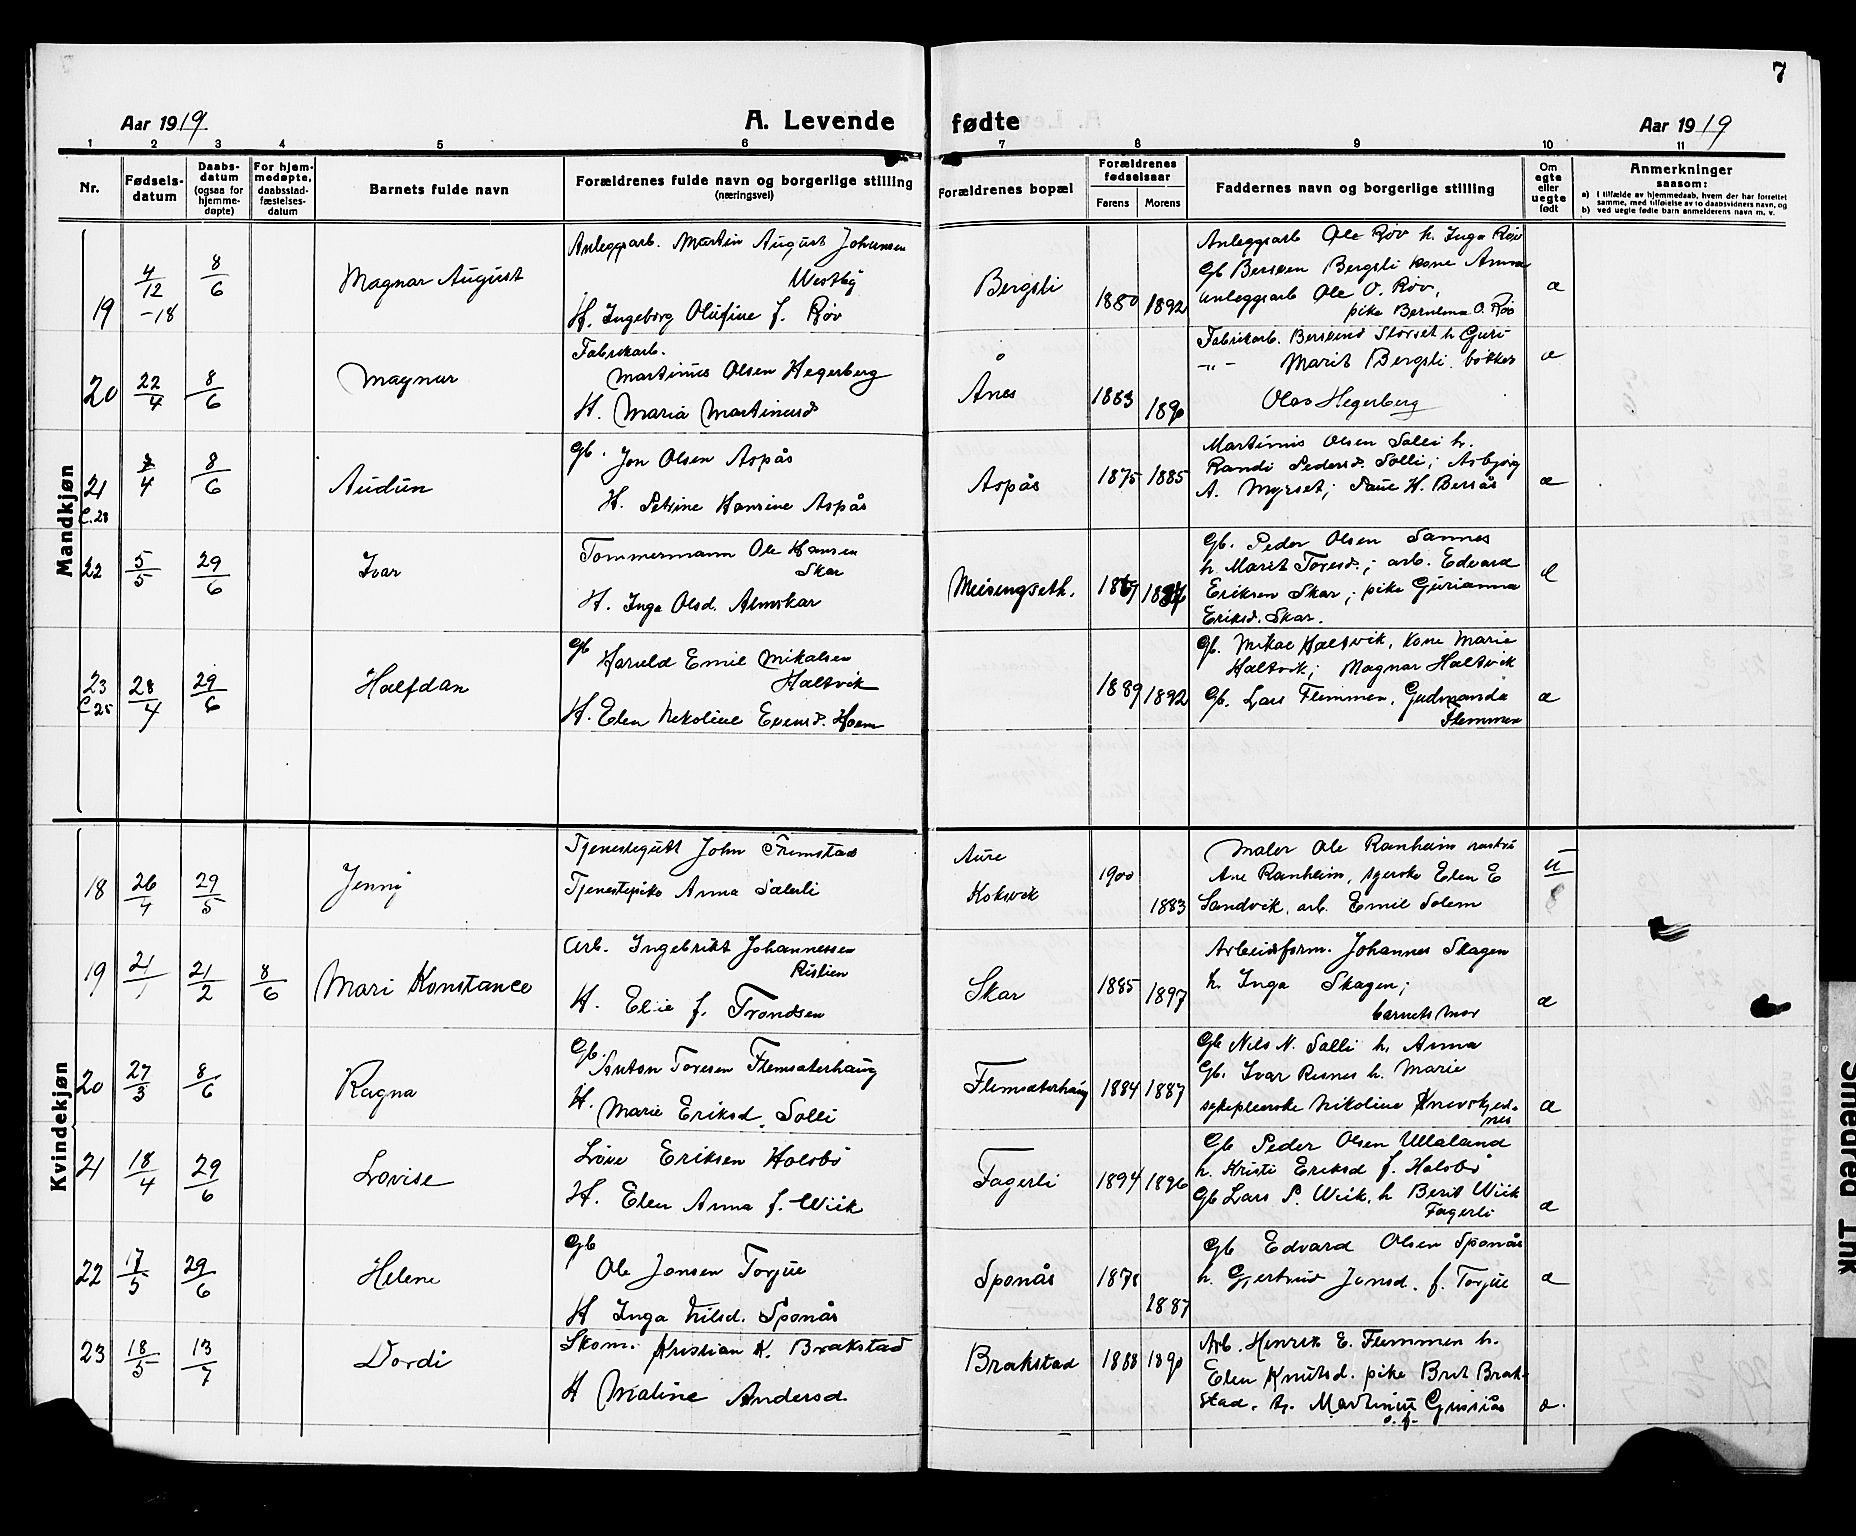 7
Aar 1919
A. Levende
fødte
Aar 1919
1 2 3 4 5 6 7 8 9 10 11
Nr.
Fødsels-
datum
Daabs-
datum
(ogsaa for
hjemme-
døpte)
For hjem-
medøpte,
daabsstad-
fæstelses-
datum
Barnets fulde navn
Forældrenes fulde navn og borgerlige stilling
(næringsvei)
Forældrenes bopæl
Forældrenes
fødselsaar
Farens
Morens
Faddernes navn og borgerlige stilling
Om
egte
eller
uegte
født
Anmerkninger
saasom:
a) i tilfælde av hjemmedaab, hvem der har forrettet
samme, med tilføielse av to daabsvidners navn, og
b) ved uegte fødte barn anmelderens navn m. v.
Mandkjøn
19
4/12
-18
8/6
Magnar August
Anleggsarb. Martin August Johansen
Westby
H. Ingeborg Olufine f. Røv
Bergsli
1880
1892
Anleggsarb Ole Røv h. Inga Røv
Gb Bersven Bergsli kone Anna
Anleggsarb Ole O. Røv,
pike Berntina O. Røv
æ
20
22/4
8/6
Magnar
Fabrikarb.
Martinus Olsen Hegerberg
H. Maria Martinusd
Ånes
1883
1890
Fabrikarb. Bersvend Storset h Guri
-"- Marit Bergsli
Olav Hegerberg
æ
21
C. 28
/4
8/6
Audun
Gb. Jon Olsen Aspås
H. Petrine Hansine Aspås
Aspås
1875
1885
Martinus Olsen Solli h.
Randi Pedersd. Solli; Asbjørg
A. Myrset; H. Bersås
æ
22
5/5
29/6
Ivar
Tømmermann Ole Hansen
Skar
H. Inga Olsd. Almskar
Meisengseth.
Gb. Peder Olsen Sannes
h. Marit Toresd.; arb. Edvard
Eriksen Skar; pike Gurianna
Eriksd. Skar.
23
C 25
28/4
29/6
Halfdan
Gb Harald Emil Mikalsen
Haltvik
H. Elen Nikoline Evensd. Hoem
1889
1892
Gb. Mikal Haltvik, kone Marie
Haltvik; Magnar Haltvik
Gb. Lars Flemmen, Gudmanda
Flemmen
æ
Kvindekjøn
18
26/4
29/5
Jenny
Tjenestegutt John Fremstad
Tjenestepike Anna Sæterli
Aure
Koksvik
1900
1883
Maler Ole Ranheim
Ane Ranheim, syerske Elen E
Sandvik, arb. Emil Solem
u
19
21/1
21/2
8/6
Mari Konstance
Arb. Ingebrikt Johannessen
Ristien
H. Elie f. Trondsen
Skar
1885
1897
Arbeidsform. Johannes Skagen
h. Inga Skagen;
barnets mor
æ
20
27/3
8/6
Ragna
Gb. Anton Toresen Flemsæterhaug
H. Marie Eriksd. Solli
Flemsæterhaug
1884
1887
Gb Nils N. Solli h. Anna
Gb. Ivar Resnes h. Marie
sykepleierske Nikoline
æ
21
18/4
29/6
Lovise
Eriksen Holsbø
H. Elen Anna f. Wiik
Fagerli
1894
1896
Gb Peder Olsen Ulland
h. Kristi Eriksd f. Holsbø
Gb Lars P. Wiik, h Berit Wiik
Fagerli
æ
22
17/5
29/6
Helene
Gb
Ole Jonsen Torjue
H Inga Nilsd. Sponås
Sponås
1878
1887
Gb Edvard Olsen Sponås
h. Gjertrud Jonsd. f. Torjue
æ
23
18/5
13/7
Dordi
Skom. Kristian K. Brakstad
H Maline Andersd
Brakstad
1888
1890
Arb. Henrik E. Flemmen h.
Elen Knutsd. pike Brit Brak-
stad. Martinus
æ
Smedred Ink